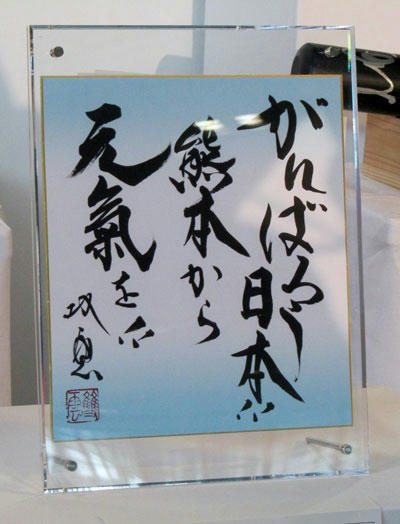 がんばろう日本!!
熊本から
元氣を!!